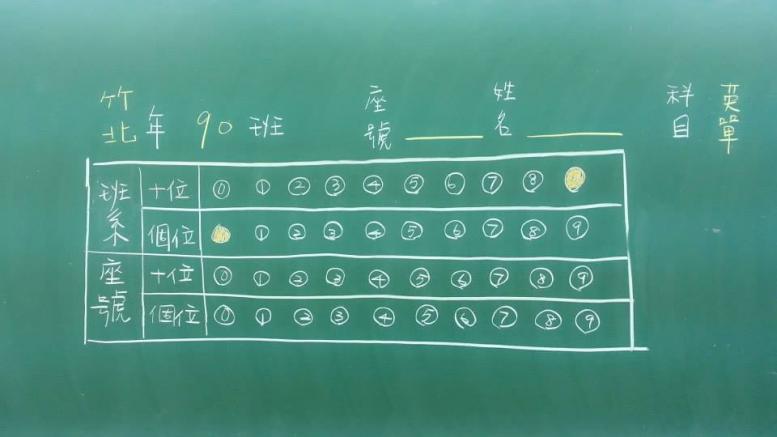 竹北年 90班 座號______ 姓名______ 科目 英單
班系 十位 ⓪ ① ② ③ ④ ⑤ ⑥ ⑦ ⑧ ⑨
個位 ⓪ ① ② ③ ④ ⑤ ⑥ ⑦ ⑧ ⑨
座號 十位 ⓪ ① ② ③ ④ ⑤ ⑥ ⑦ ⑧ ⑨
個位 ⓪ ① ② ③ ④ ⑤ ⑥ ⑦ ⑧ ⑨